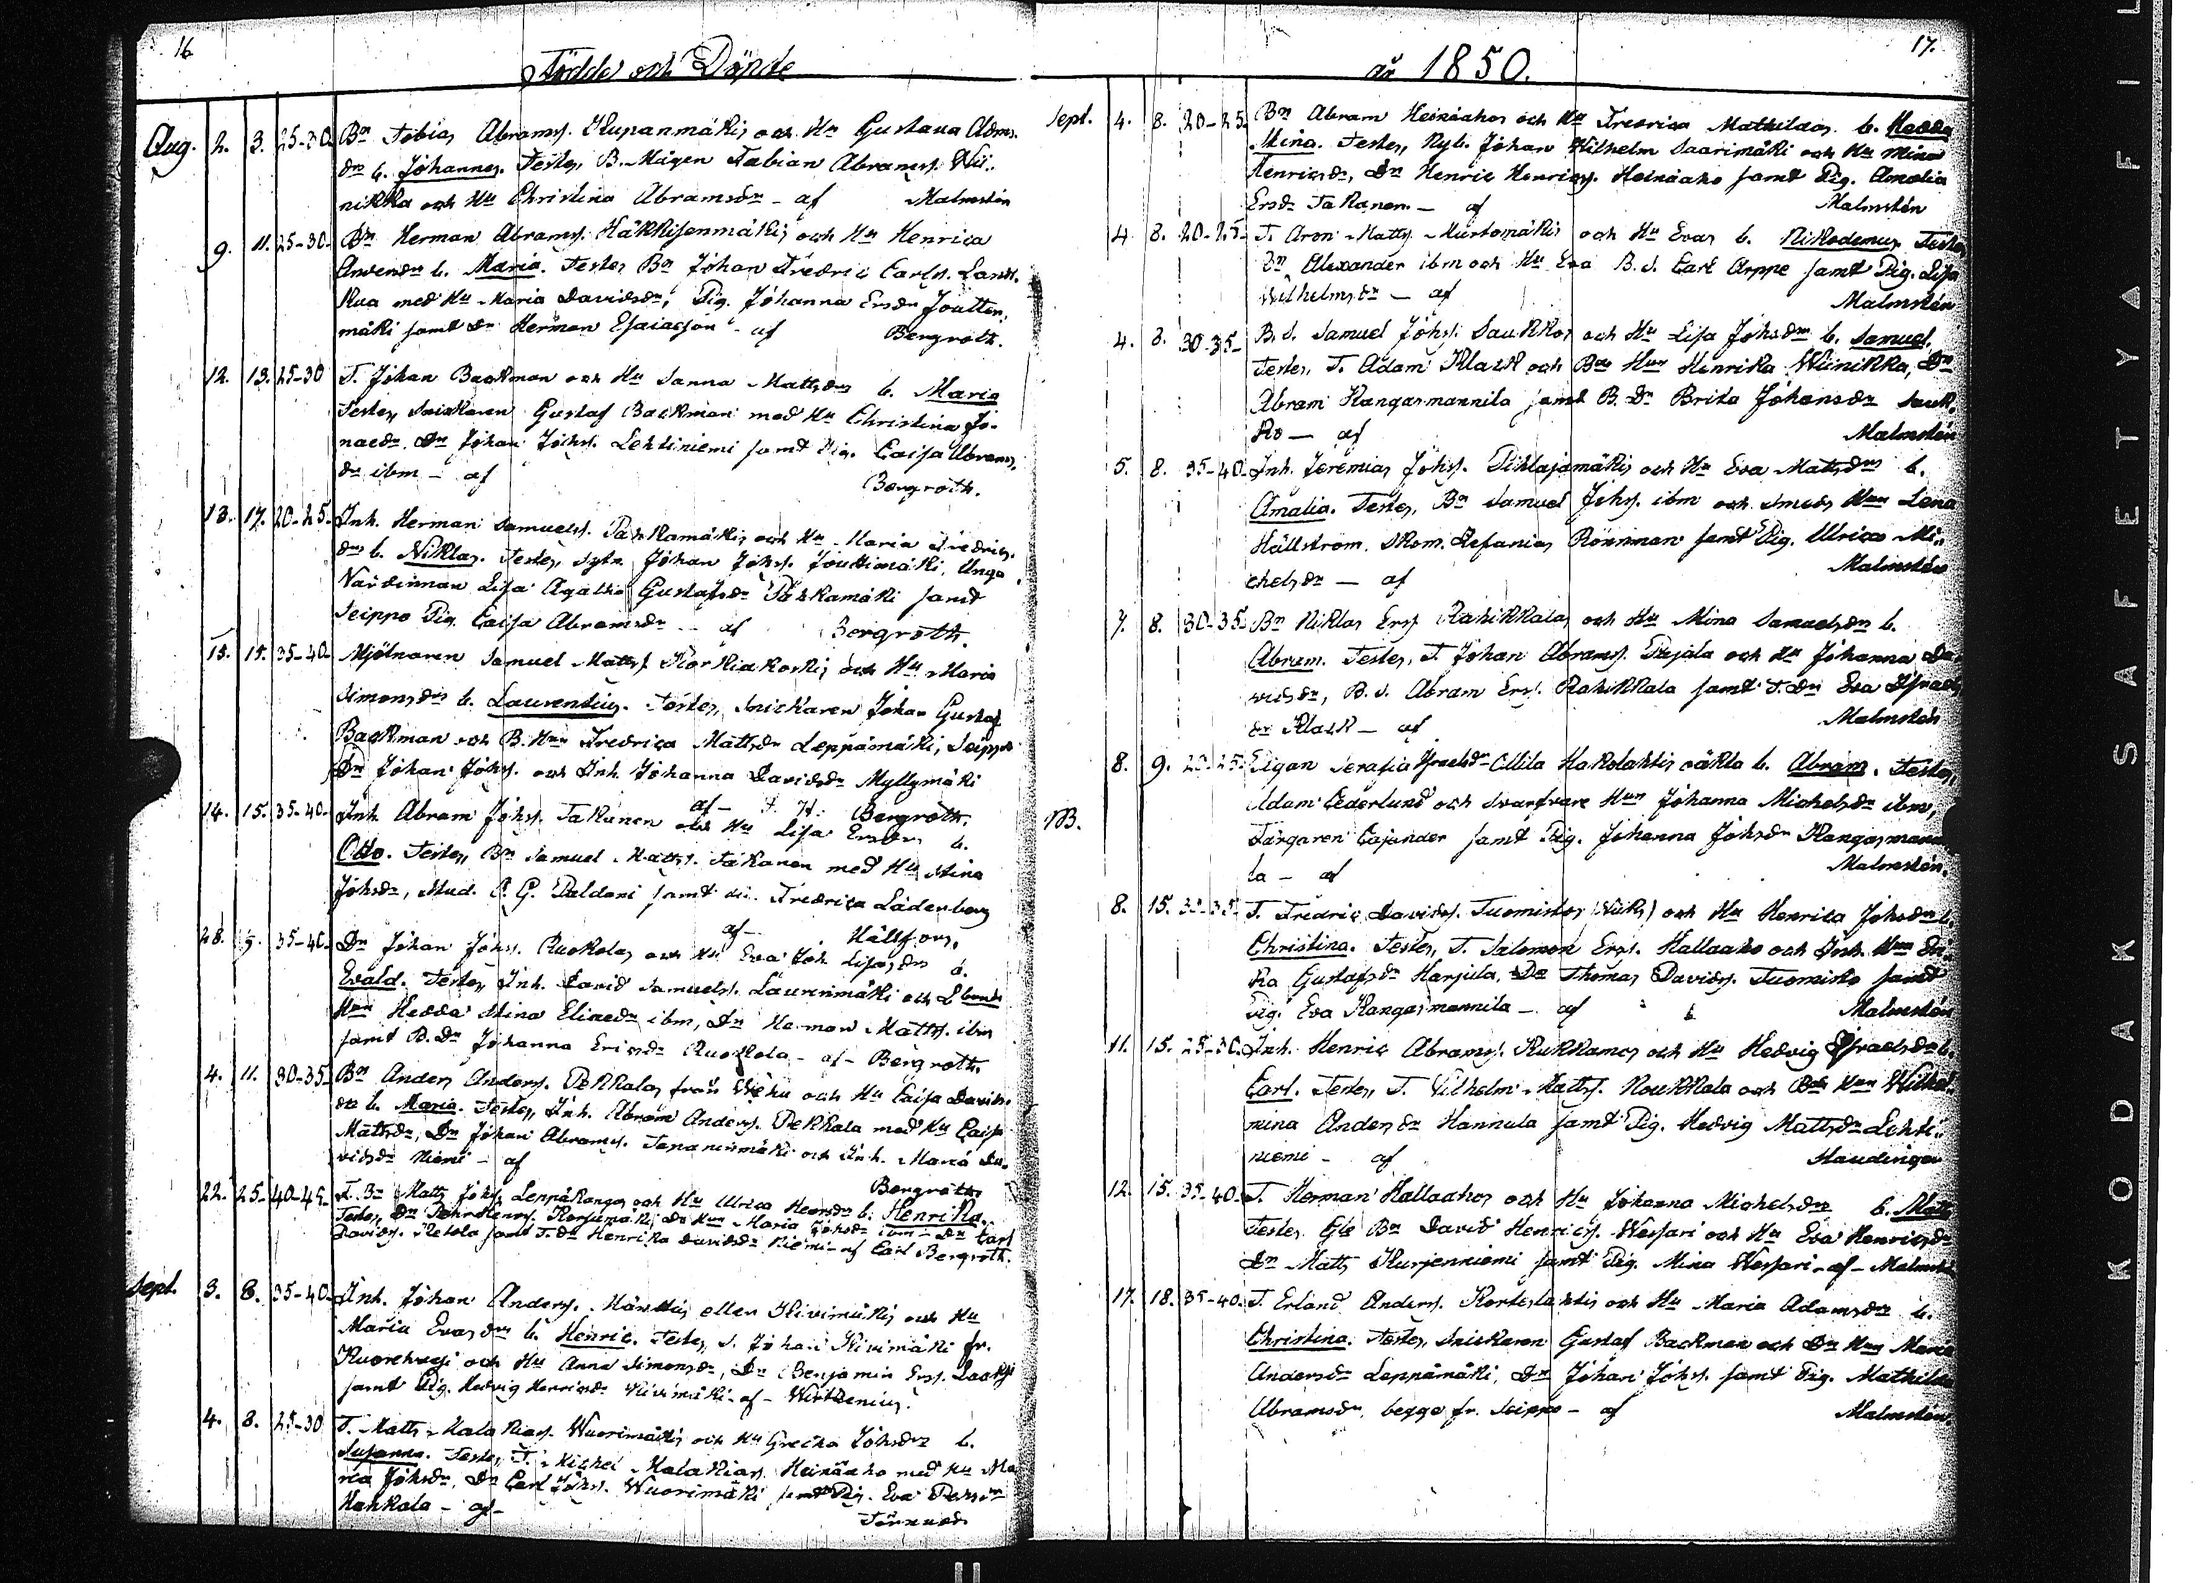 16
Födde och Döpde
Aug. 2. 3. 25-30. Bn Tobias Abramss. Kupanmäkis och Hu Gustava Adms.
dn b. Johannes. Testes, B. Mågen Fabian Abramss. Wii-
nikka och Hu Christina Abramsdn - af Malmstén
9. 11. 25-30. Bn Herman Abramss. Häkkisenmäkis och Hu Henrica
b. Maria. Testes Bn Johan Fredric Carls.
med Hu Maria Davidsdr, Pig. Johanna Ersdr Joutten-
mäki samt Dr Herman Esaiasson - af Bergroth.
12. 13. 25-30 T. Johan Backman och Hu Sanna Mattsdr b. Maria
Testes, Snickaren Gustaf Backman med Hu Christina Jo-
naedr, Dr Johan Johss. Lehtiniemi samt Pig. Caisa Abrams.
dr ibm - af Bergroth.
13. 17. 20-25. Inh. Herman Samuelss. och Hu Maria Fredrics.
dr b. Niklas. Testes, Johan Johss. Jouttimäki, Unga
Lisa Agatha Gustafsdr samt
Seippo Pig. Caisa Abramsdr - af Bergroth.
15. 15. 35-40. Mjölnaren Samuel Mattss. Korkiakoskis och Hu Maria
Simonsdr b. Laurentius. Testes, Snickaren Johan Gustaf
Backman och B. Hun Fredrica Mattsdr Leppämäki, Seippo
Dr Johan Johss. och Inh. Johanna Davidsdr Myllymäki
af Bergroth.
14. 15. 35-40. Inh. Abram Johss. Takanen och Hu Lisa Ersdr b.
Otto. Testes, Bn Samuel Mattss. Takanen med Hu Stina
Johsdr, Stud. P. G. Paldani samt Fredrica Ladenberg
af Hällfors.
28. 35-40. Dr Johan Johss. Ruokolas och Hu Eva b.
Evald. Testes, Inh. David Samuelss. Laurinmäki och
Hun Hedda Stina Eliaedr ibm, Dr Herman Mattss. ibm
samt B. Dr Johanna Ericsdr Ruokola - af - Bergroth.
4. 11. 30-35. Bn Anders Anderss. Pekkalas från och Hu Caisa Davids-
dr b. Maria. Testes, Inh. Abram Anderss. Pekkala med Hu Caisa
Mattsdr, Dr Johan Abramss. och Inh. Maria Da-
vidsdr Niemi - af Bergroth
22. 25. 40-45. T. Bn Matts Johss. Leppäkangas och Hu Ulrica Henrsdr b. Henrika.
Testes, Dr och Hun Maria Johsdr ibm - Dr Carl
Davidss. Ketola samt T. Dr Henrika Davidsdr Niemi - af Carl Bergroth.
Sept. 3. 8. 35-40. Inh. Johan Anderss. eller Kivimäkis och Hu
Maria Evasdr b. Henric. Testes, S. Johan Kivimäki fr.
Kuorehvesi och Hu Anna Simonsdr, Dr Benjamin Erss.
samt Pig. Hedvig Henricsdr Kivimäki - af - Wirtzenius.
4. 8. 25-30 T. Matts Malakiass. Wuorimäkis och Hu Greta Johsdr b.
Susanna. Testes, T. Michel Malakiass. Heinäaho med Hu Ma-
ria Johsdr, Dr Carl Johss. Wuorimäki samt Pig. Eva
Hankala - af -
17.
år 1850.
Sept. 4. 8. 20-25. Bn Abram Heinäahos och Hu Fredrica Mathildas b. Hedda
Mina. Testes, Nyb. Johan Wilhelm Saarimäki och Hu Mina
Henricsdr, Dr Henric Henricss. Heinäaho samt Pig. Amalia
Ersdr Takanen - af Malmstén
4. 8. 20-25. T. Aron Mattss. Murtomäkis och Hu Evas b. Nikodemus. Testes,
Dn Alexander ibm och Hu Eva B. S. Carl Arppe samt Pig. Lisa
Wilhelmsdr - af Malmstén
4. 8. 30-35. B. S. Samuel Johss. Saukkos och Hu Lisa Johsdrs b. Samuel.
Testes, T. Adam Klack och Bns Hun Henrika Wiinikka, Dr
Abram Kangasmannila samt B. Dr Brita Johansdr Sauk-
ko - af Malmstén
5. 8. 35-40. Inh. Jeremias Johss. Pihlajamäkis och Hu Eva Mattsdrs b.
Amalia. Testes, Bn Samuel Johss. ibm och Smeds Hun Lena
Hällström, Skom. Zefanias Rönnman samt Pig. Ulrica Mi-
chelsdr - af Malmstén
7. 8. 30-35. Bn Niklas Erss. Rahikkalas och Hu Mina Samuelsdrs b.
Abram. Testes, T. Johan Abramss. Pajala och Hu Johanna Da-
vidsdr, B. S. Abram Erss. Rahikkala samt T. Dr Eva Israels-
dr Klack - af Malmstén
8. 9. 20-25. Pigan Serafia Israelsdr Ollila Hokolahtis oäkta b. Abram. Testes,
Adam Cederlund och Svarfvare Hun Johanna Michelsdr ibm,
NB. Färgaren Cajander samt Pig. Johanna Johsdr Kangasmanni-
la - af Malmstén.
8. 15. 30-35. T. Fredric Davidss. Tuomistos och Hu Henrica Johsdrs b.
Christina. Testes, T. Salomon Erss. Hallaaho och Inh. Hun
Gustafsdr Harjula, Dr Thomas Davidss. Tuomisto samt
Pig. Eva Kangasmannila - af Malmstén
11. 15. 25-30. Inh. Henric Abramss. Kukkamos och Hu Hedvig Israelsdr b.
Carl. Testes, T. Vilhelm Mattss. Roukkala och Bns Hun Wilhel-
mina Andersdr Hannula samt Pig. Hedvig Mattsdr Lehti-
niemi - af Standinger
12. 15. 35-40. T. Herman Hallaahos och Hu Johanna Michelsdrs b. Matts
Testes, Gle Bn David Henricss. Wessari och Hu Eva Henricsdr
Dr Matts Kurjenniemi samt Pig. Mina Wessari - af - Malmstén
17. 18. 35-40. T. Erland Anderss. Korteslahtis och Hu Maria Adamsdrs b.
Christina. Testes, Snickaren Gustaf Backman och Dr Hun Maria
Andersdr Leppämäki, Dr Johan Johss. samt Pig. Mathilda
Abramsdr, begge fr. Seippo - af Malmstén.
KODAK SAFETY FIL